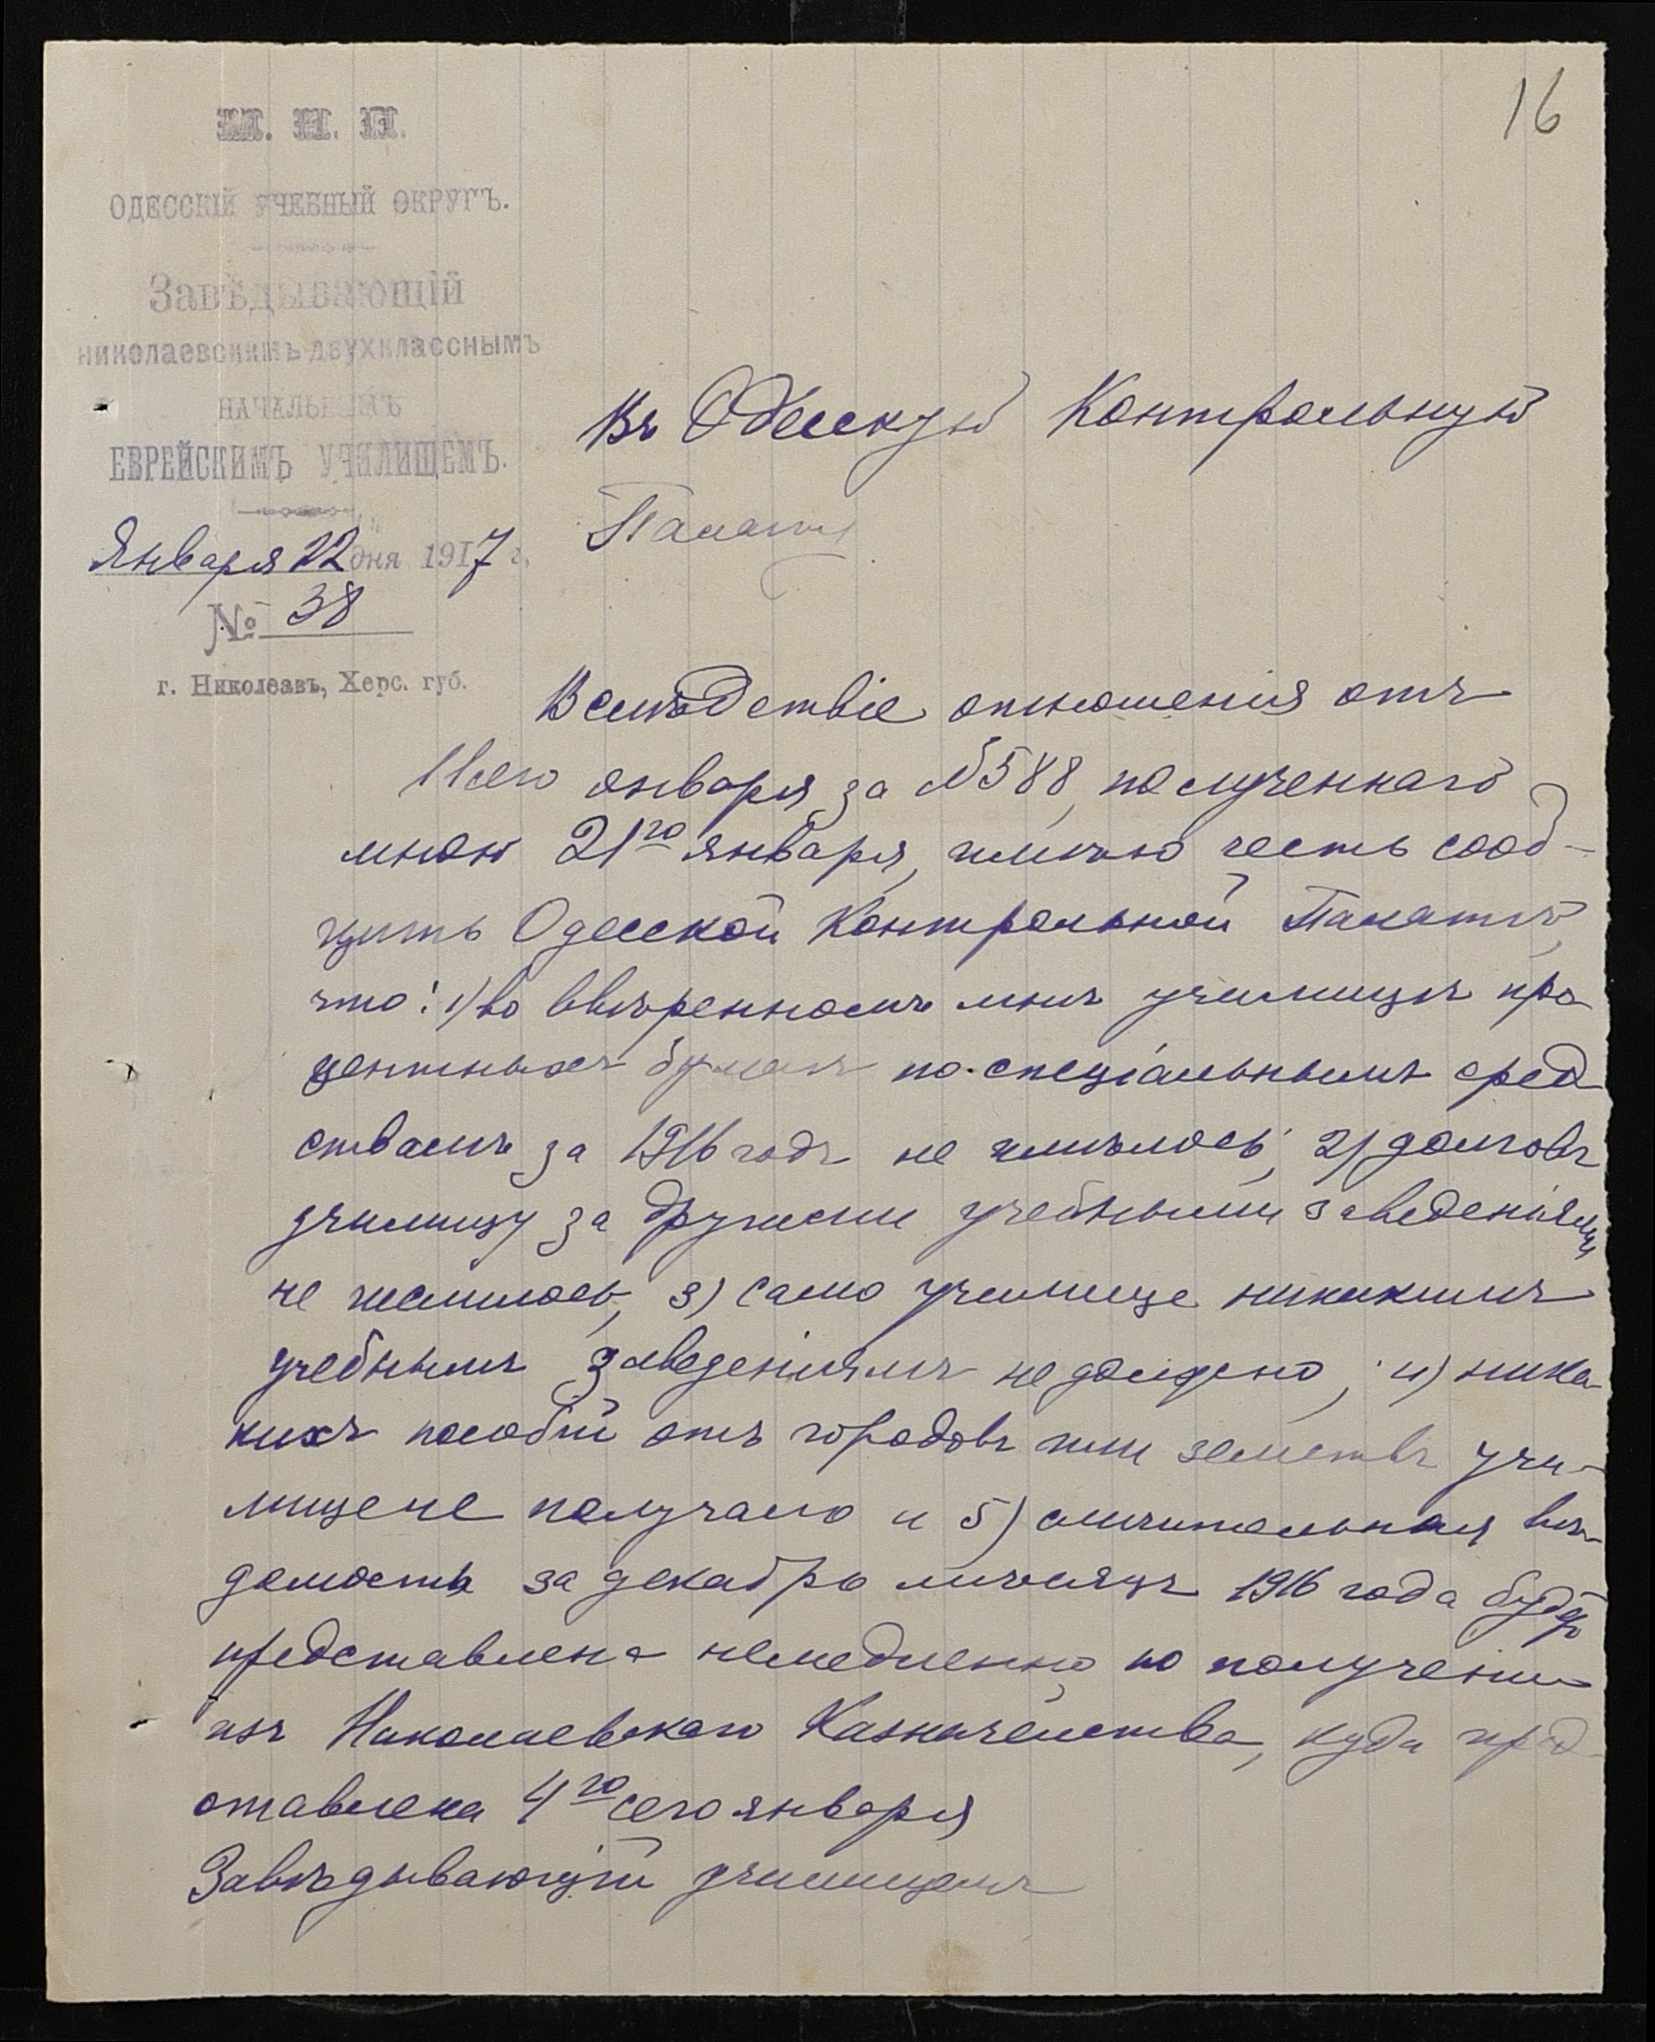 16
М. Н. П.
ОДЕССКІЙ УЧЕБНЫЙ ОКРУГЪ.
Завѣдывающій
николаевскимъ двухкласснымъ
НАЧАЛЬНЫМЪ
ЕВРЕЙСКИМЪ УЧИЛИЩЕМЪ.
Января 22 дня 1917 г.
№ 38
г. Николаевъ, Херс. губ.
Въ Одесскую Контрольную
Палату
Вслѣдствіе отношенія отъ
11 сего января за №588, полученнаго
мною 21го января, имѣю честь сооб-
щить Одесской Контрольной Палатѣ,
что: 1) во ввѣренномъ мнѣ училищѣ про
центныхъ бумагъ по спеціальнымъ сред
ствамъ за 1916 годъ не имѣлось; 2) долговъ
училищу за другими учебными заведеніями
не числилось, 3) само училище никакимъ
учебнымъ заведеніямъ не должно; 4) ника
кихъ пособій отъ городовъ или земствъ учи-
лище не получало и 5) сличительная вѣ-
домость за декабрь мѣсяцъ 1916 года будетъ
представлена немедленно по полученіи
изъ Николаевскаго Казначейства, куда пред
ставлена 4го сего января
Завѣдывающій училищемъ